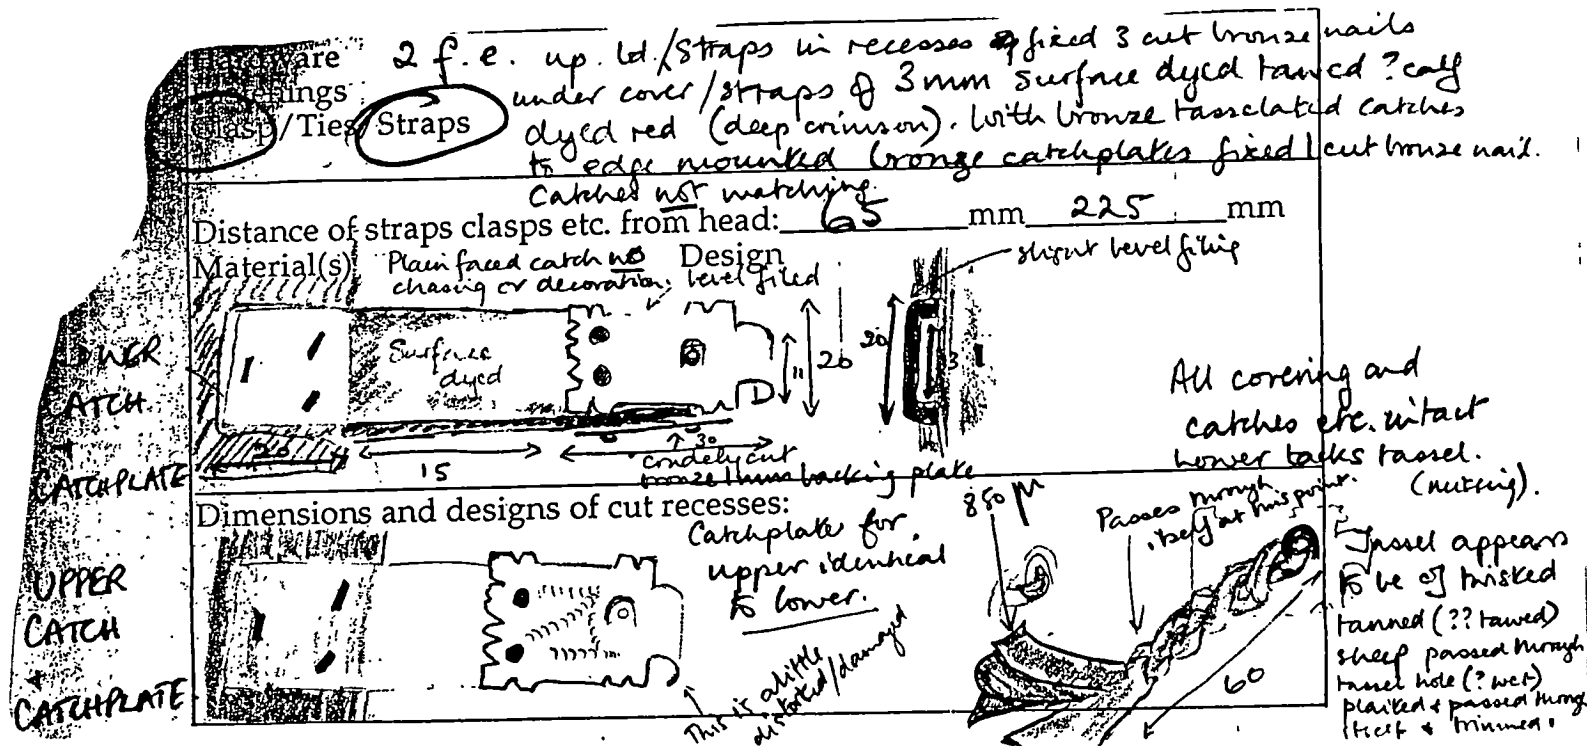 Hardware 2 f.e. up. bd./Straps in recesses fixed 3 cut bronze nails
under cover/straps of 3mm surface dyed tawed ?calf
Clasp/Ties/Straps dyed red (deep crimson). With bronze tasselated catches
to edge mounted bronze catchplates fixed 1 cut bronze nail.
Catches not matching.
Distance of straps clasps etc. from head: 65 mm 225 mm
Material(s) Plain faced catch no Design
chasing or decoration. bevel filed
slight bevel filing
LOWER
CATCH
+
CATCHPLATE
Surface
dyed
11
20
20
13
1
26
15
30
crudely cut
bronze 1mm backing plate
All covering and
catches etc. intact
Lower lacks tassel.
Dimensions and designs of cut recesses:
UPPER
CATCH
+
CATCHPLATE
Catchplate for
upper identical
to lower.
This is a little
distorted/damaged
850 µ
Passes through
itself at this point.
60
Tassel appears
to be of twisted
tanned (??tawed)
sheep passed through
tassel hole (?wet)
plaited & passed through
itself & trimmed.